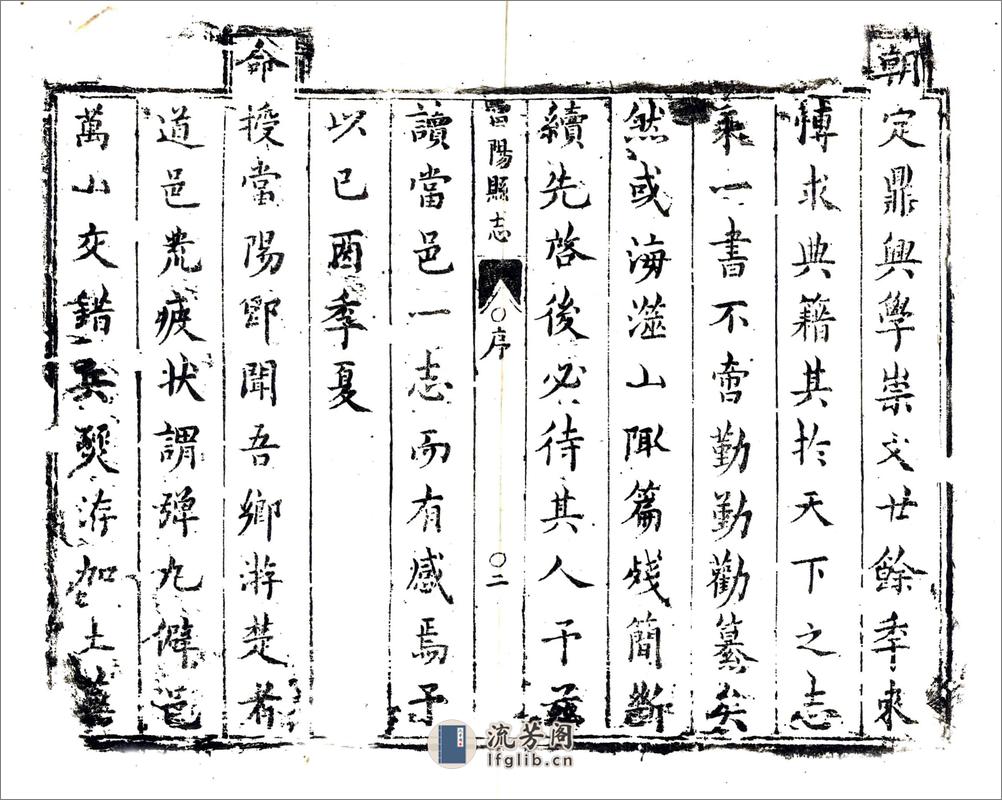 朝定鼎興學崇文廿餘季來
博求典籍其扵天下之志
乘一書不啻勤勤勸纂矣
然或海澨山陬篇殘簡斷
續先啓後必待其人于茲
當陽縣志 〇序 〇二
讀當邑一志而有感焉予
以己酉季夏
命授當陽卽聞吾鄉游楚者
道邑荒疲狀謂彈丸僻邑
萬山交錯兵燹洊加土蕪
流芳阁
lfglib.cn